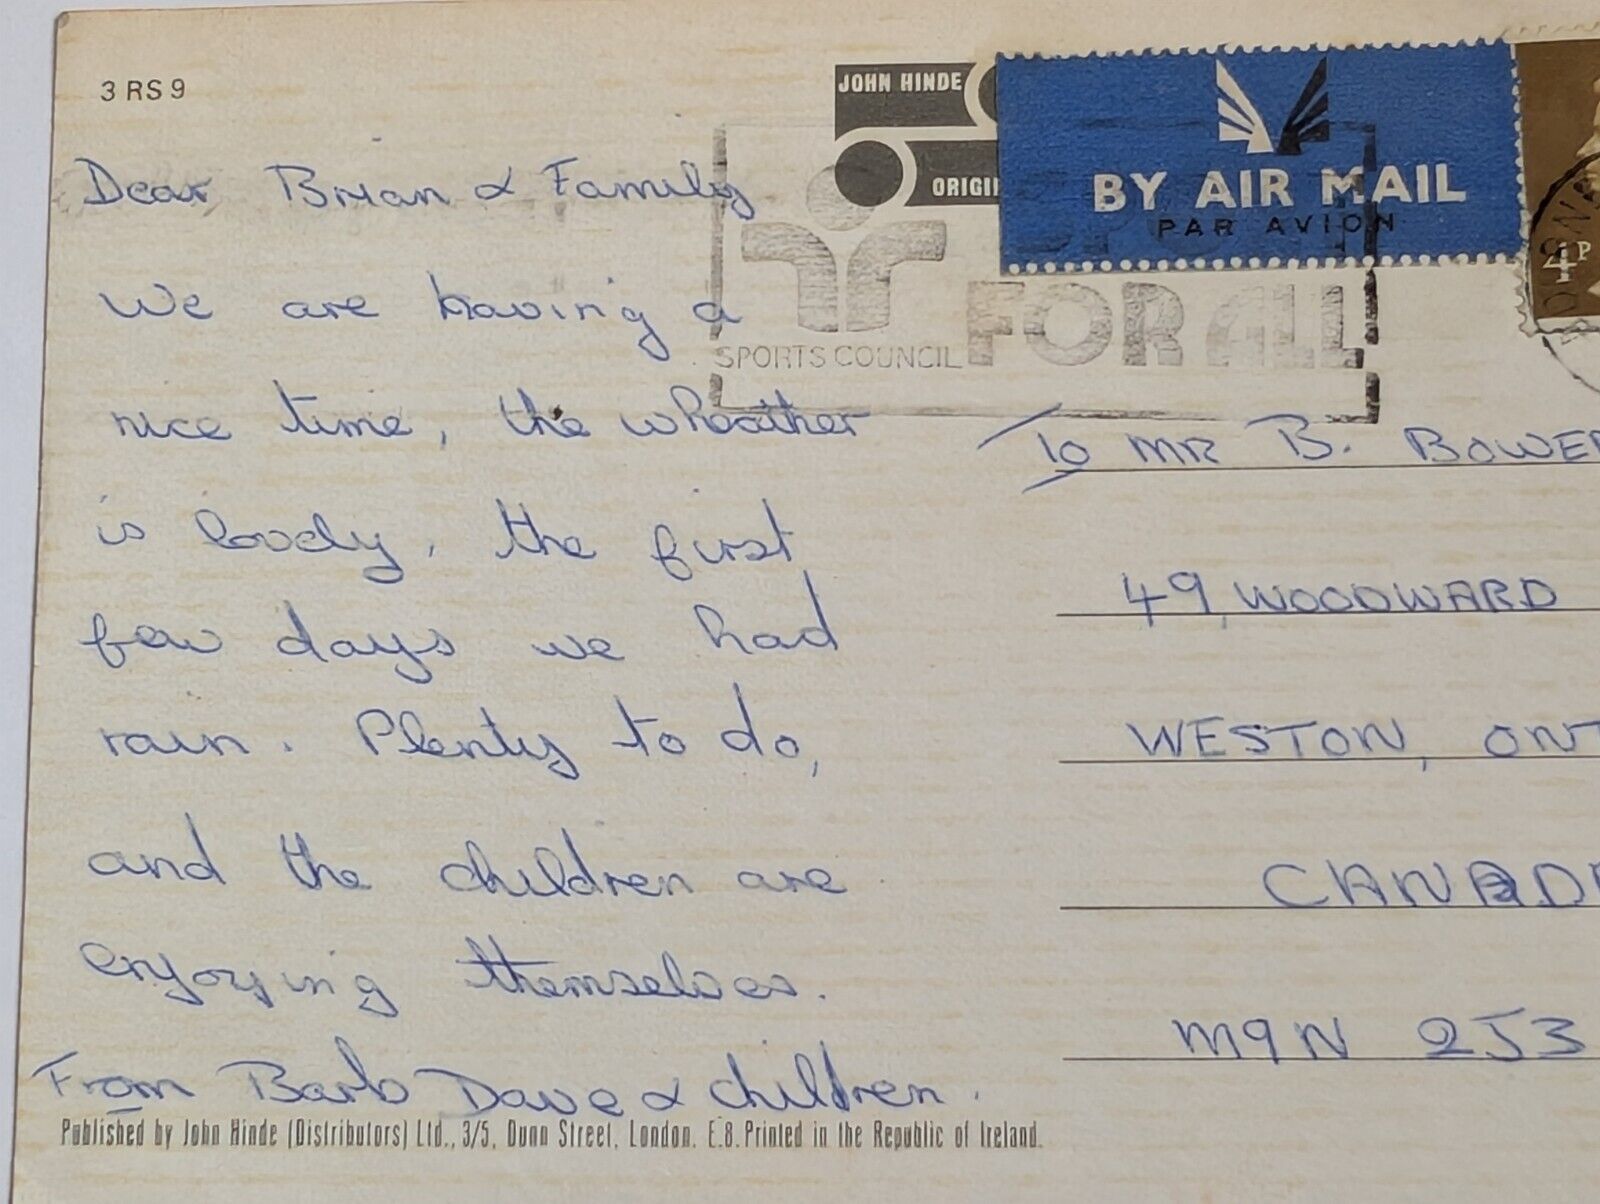 3 RS 9
JOHN HINDE
ORIGI
BY AIR MAIL
PAR AVION
4P
SPORTS COUNCIL
FOR ALL
Dear Brian & Family
We are having a
nice time, the wheather
is lovely, the first
few days we had
rain. Plenty to do,
and the children are
enjoying themselves.
From Barb Dave & children.
To MR B. BOWER
49, WOODWARD
WESTON, ONT
CANADA
M9N 2J3
Published by John Hinde (Distributors) Ltd., 3/5, Dunn Street, London. E.8. Printed in the Republic of Ireland.